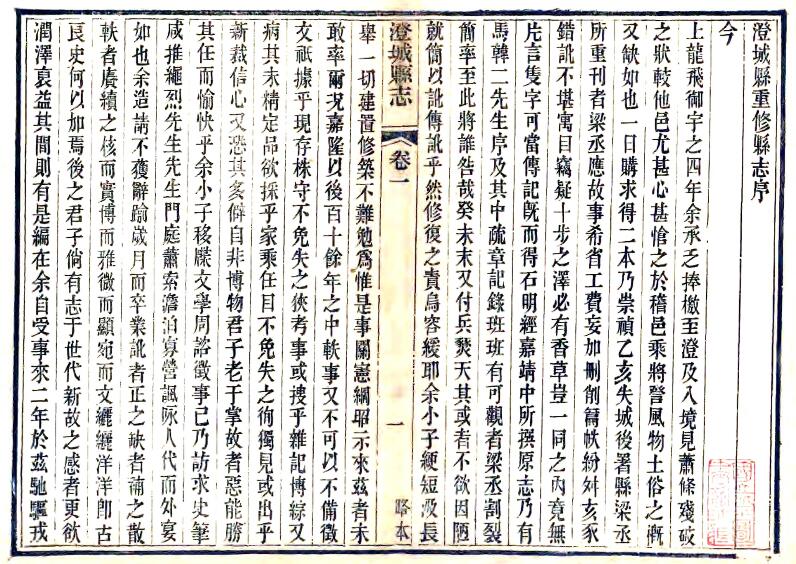 澄城縣重修縣志序
今
上龍飛御宇之四年余承乏捧檄至澄及入境見蕭條殘破
之狀較他邑尤甚心甚愴之於稽邑乘將譬風物土俗之槪
又缺如也一日購求得二本乃崇禎乙亥失城後署縣梁丞
所重刊者梁丞應故事希省工費妄加刪削篇帙紛舛亥豕
錯訛不堪寓目竊疑十步之澤必有香草豈一同之內竟無
片言隻字可當傳記旣而得石明經嘉靖中所撰原志乃有
馬韓二先生序及其中疏章記錄班班有可觀者梁丞割裂
簡率至此將誰咎哉癸未末又付兵燹天其或者不欲因陋
就簡以訛傳訛乎然修復之責烏容緩耶余小子綆短汲長
澄城縣志
卷一
一
略本
舉一切建置修築不難勉爲惟是事關憲綱昭示來茲者未
敢率爾况嘉隆以後百十餘年之中軼事又不可以不備徵
文祇據乎現存株守不免失之狹考事或搜乎雜記博綜又
病其未精定品欲採乎家乘任目不免失之徇獨見或出乎
新裁信心又恐其多僻自非博物君子老于掌故者惡能勝
其任而愉快乎余小子移牒文學周諮徵事已乃訪求史筆
咸推繩烈先生先生門庭蕭索澹泊寡營諷咏人代而外宴
如也余造請不獲辭踰歲月而卒業訛者正之缺者補之散
軼者賡續之核而實博而雅微而顯宛而文纚纚洋洋卽古
良史何以加焉後之君子倘有志于世代新故之感者更欲
潤澤裒益其間則有是編在余自受事來二年於茲馳驅戎